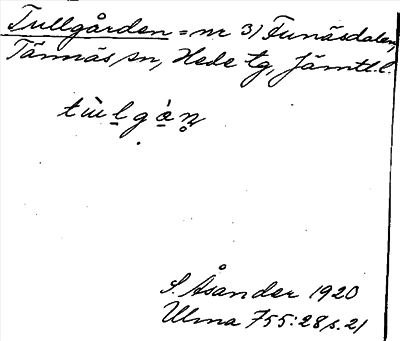 Tullgården = nr 3) Funäsdalen,
Tännäs sn, Hede tg, Jämtl. l.
S. Åsander 1920
Ulma 755:28 s. 21